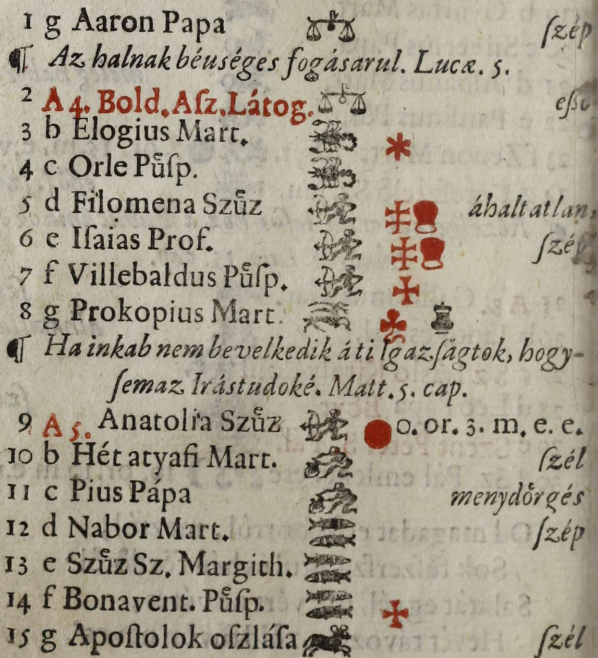 1 g Aaron Papa ſzép
¶ Az halnak béuséges fogásarul. Lucæ. 5.
2 A 4. Bold. Aſz. Látog. eſső
3 b Elogius Mart.
4 c Orle Půſp.
5 d Filomena Szůz áhaltatlan,
6 e Iſaias Prof. ſzép
7 f Villebaldus Půſp.
8 g Prokopius Mart.
¶ Ha inkab nem bevelkedik á ti Igazſágtok, hogy-
ſemaz Irástudoké. Matt. 5. cap.
9 A 5. Anatolia Szůz 0. or. 3. m. e. e.
10 b Hét atyafi Mart. ſzél
11 c Pius Pápa menydőrgés
12 d Nabor Mart. ſzép
13 e Szůz Sz. Margith.
14 f Bonavent. Půſp.
15 g Apoſtolok oſzláſa ſzél